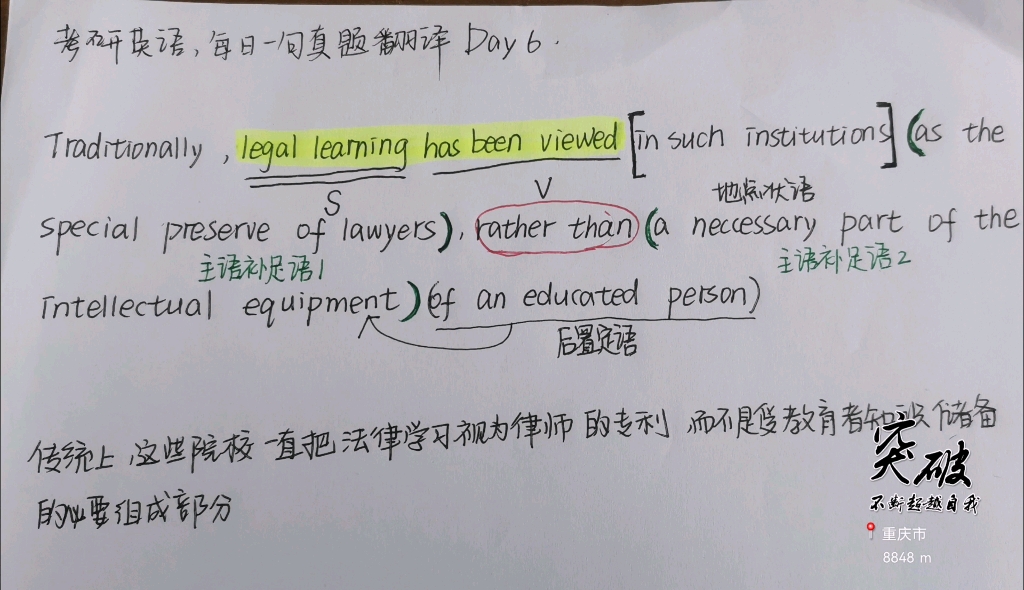 考研英语，每日一句真题翻译 Day 6.
Traditionally, legal learning has been viewed [in such institutions] (as the
S
V
地点状语
special preserve of lawyers), rather than (a neccessary part of the
主语补足语1
主语补足语2
intellectual equipment) (of an educated person)
后置定语
传统上，这些院校一直把法律学习视为律师的专利 而不是受教育者知识储备
的必要组成部分
突破
不断超越自我
重庆市
8848 m